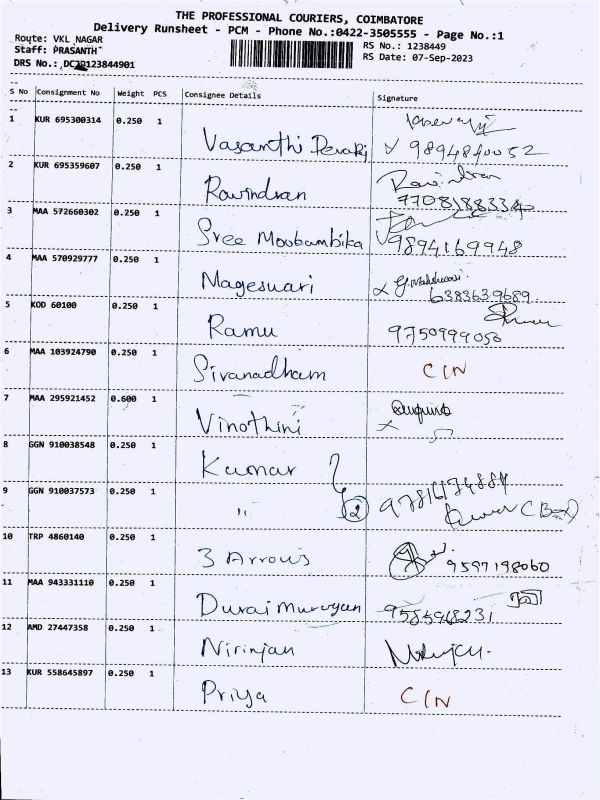 THE PROFESSIONAL COURIERS, COIMBATORE
Delivery Runsheet - PCM - Phone No.:0422-3505555 - Page No.:1
Route: VKL NAGAR
Staff: PRASANTH
RS No.: 1238449
RS Date: 07-Sep-2023
DRS No.:
S No Consignment No Weight PCS Consignee Details Signature
1 KUR 695300314 0.250 1 Vasanthi Devaki 9894840052
2 KUR 695359607 0.250 1 Ravindran Ravindran
3 MAA 572660302 0.250 1 Sree Moobambika 9894169948
4 MAA 570929777 0.250 1 Mageswari
6383639689
5 KOD 60100 0.250 1 Ramu 9750999056
6 MAA 103924790 0.250 1 Sivanadham CIN
7 MAA 295921452 0.600 1 Vinothini
8 GGN 910038548 0.250 1 Kumar
9 GGN 910037573 0.250 1 " 2
10 TRP 4860140 0.250 1 3 Arrows 9597198060
11 MAA 943331110 0.250 1 Durai Murugan
12 AMD 27447358 0.250 1 Nirinjan
13 KUR 558645897 0.250 1 Priya CIN